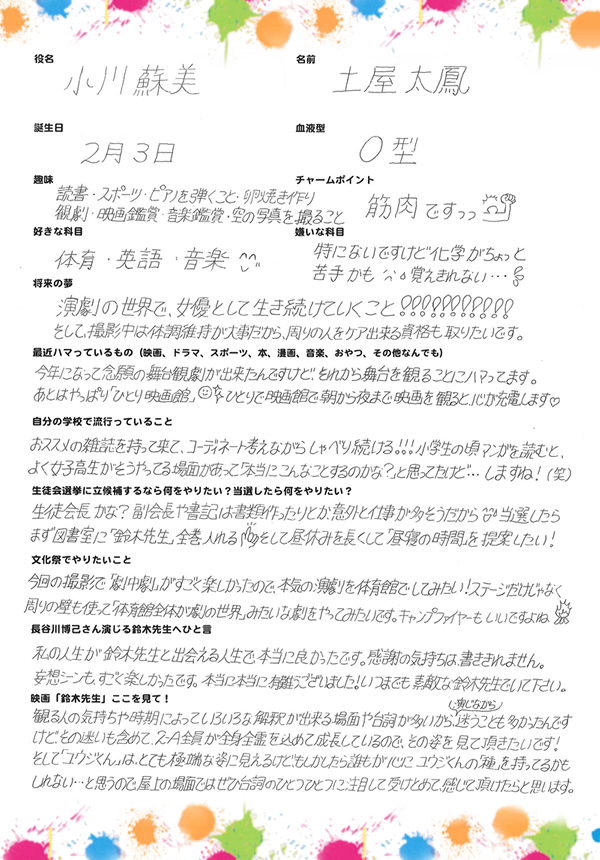 役名
名前
小川 蘇美
土屋 太鳳
誕生日
血液型
2月3日
O型
趣味
チャームポイント
読書・スポーツ・ピアノを弾くこと・卵焼き作り
観劇・映画鑑賞・音楽鑑賞・空の写真を撮ること
筋肉ですっっ
好きな科目
嫌いな科目
体育・英語・音楽
特にないですけど化学がちょっと
苦手かも 覚えきれない…
将来の夢
演劇の世界で、女優として生き続けていくこと!!!!!!!!!!!
そして、撮影中は体調維持が大事だから、周りの人をケア出来る資格も取りたいです。
最近ハマっているもの（映画、ドラマ、スポーツ、本、漫画、音楽、おやつ、その他なんでも）
今年になって念願の舞台観劇が出来たんですけど、それから舞台を観ることにハマってます。
あとはやっぱり「ひとり映画館」 ひとりで映画館で朝から夜まで映画を観ると、心が充電します♡
自分の学校で流行っていること
おススメの雑誌を持って来て、コーディネート考えながらしゃべり続ける!!!小学生の頃マンガを読むと、
よく女子高生がそうやってる場面があって「本当にこんなことするのかな?」と思ってたけど…しますね!(笑)
生徒会選挙に立候補するなら何をやりたい？当選したら何をやりたい？
生徒会長かな?副会長や書記は書類作ったりとか、意外と仕事が多そうだから 当選したら
まず図書室に「鈴木先生」全巻入れる そして昼休みを長くして「昼寝の時間」を提案したい!
文化祭でやりたいこと
今回の撮影で「劇中劇」がすごく楽しかったので、本気の演劇を体育館でしてみたい!ステージだけじゃなく
周りの壁も使って「体育館全体が劇の世界」みたいな劇をやってみたいです。キャンプファイヤーもいいですよね
長谷川博己さん演じる鈴木先生へひと言
私の人生が鈴木先生と出会える人生で、本当に良かったです。感謝の気持ちは、書ききれません。
妄想シーンも、すごく楽しかったです。本当に本当に有難うございました!いつまでも素敵な鈴木先生でいて下さい。
映画「鈴木先生」ここを見て！
観る人の気持ちや時期によっていろいろな解釈が出来る場面や台詞が多いから、演じながら迷うことも多かったんです
けど、その迷いも含めて、2-A全員が全身全霊を込めて成長しているので、その姿を見て頂きたいです!
そして「ユウジくん」は、とても極端な姿に見えるけど、もしかしたら誰もが心にユウジくんの「種」を持ってるかも
しれない…と思うので、屋上の場面ではぜひ台詞のひとつひとつに注目して受けとめて、感じて頂けたらと思います。